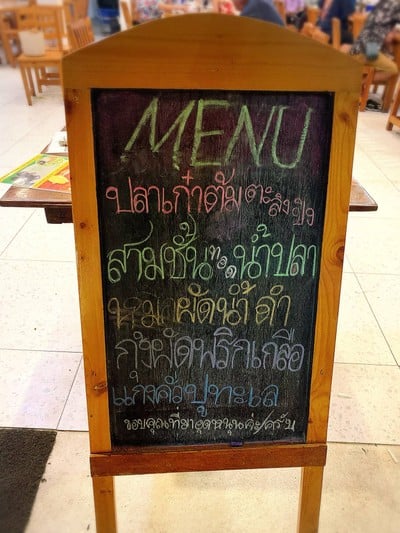 MENU
ปลาเก๋าต้มตะลิงปิง
สามชั้นทอดน้ำปลา
หมึกผัดน้ำดำ
กุ้งผัดพริกเกลือ
แกงคั่วปูทะเล
ขอบคุณที่มาอุดหนุนค่ะ/ครับ